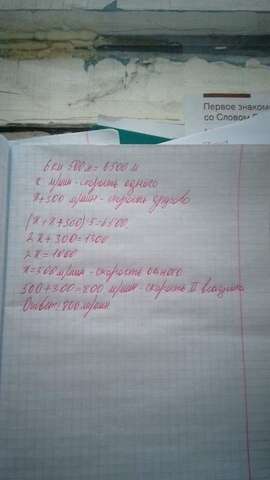 Первое знаком
со Словом
6 км 500 м = 6500 м
х м/мин - скорость одного
х+300 м/мин - скорость другого
(х+х+300)·5=6500
2х+300=1300
2х=1000
х=500 м/мин - скорость одного
500+300=800 м/мин - скорость II
Ответ: 800 м/мин